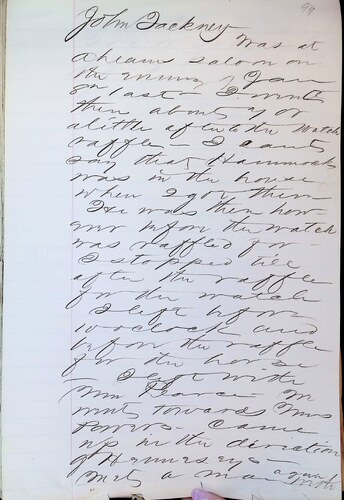 99
John Tackney
was at
Ahearns saloon on
the evening of Jan
last - I went
there about 7 or
a little after to the watch
raffle - I cant
say that Hammond
was in the house
when I got there
He was there how-
ever before the watch
was raffled for -
I stopped till
after the raffle
for the watch
I left before
10 oclock and
before the raffle
for the horse
I left with
Wm Pearce - We
went towards Mrs
Powers - Came
up in the direction
of Hennesseys - again
met a man with